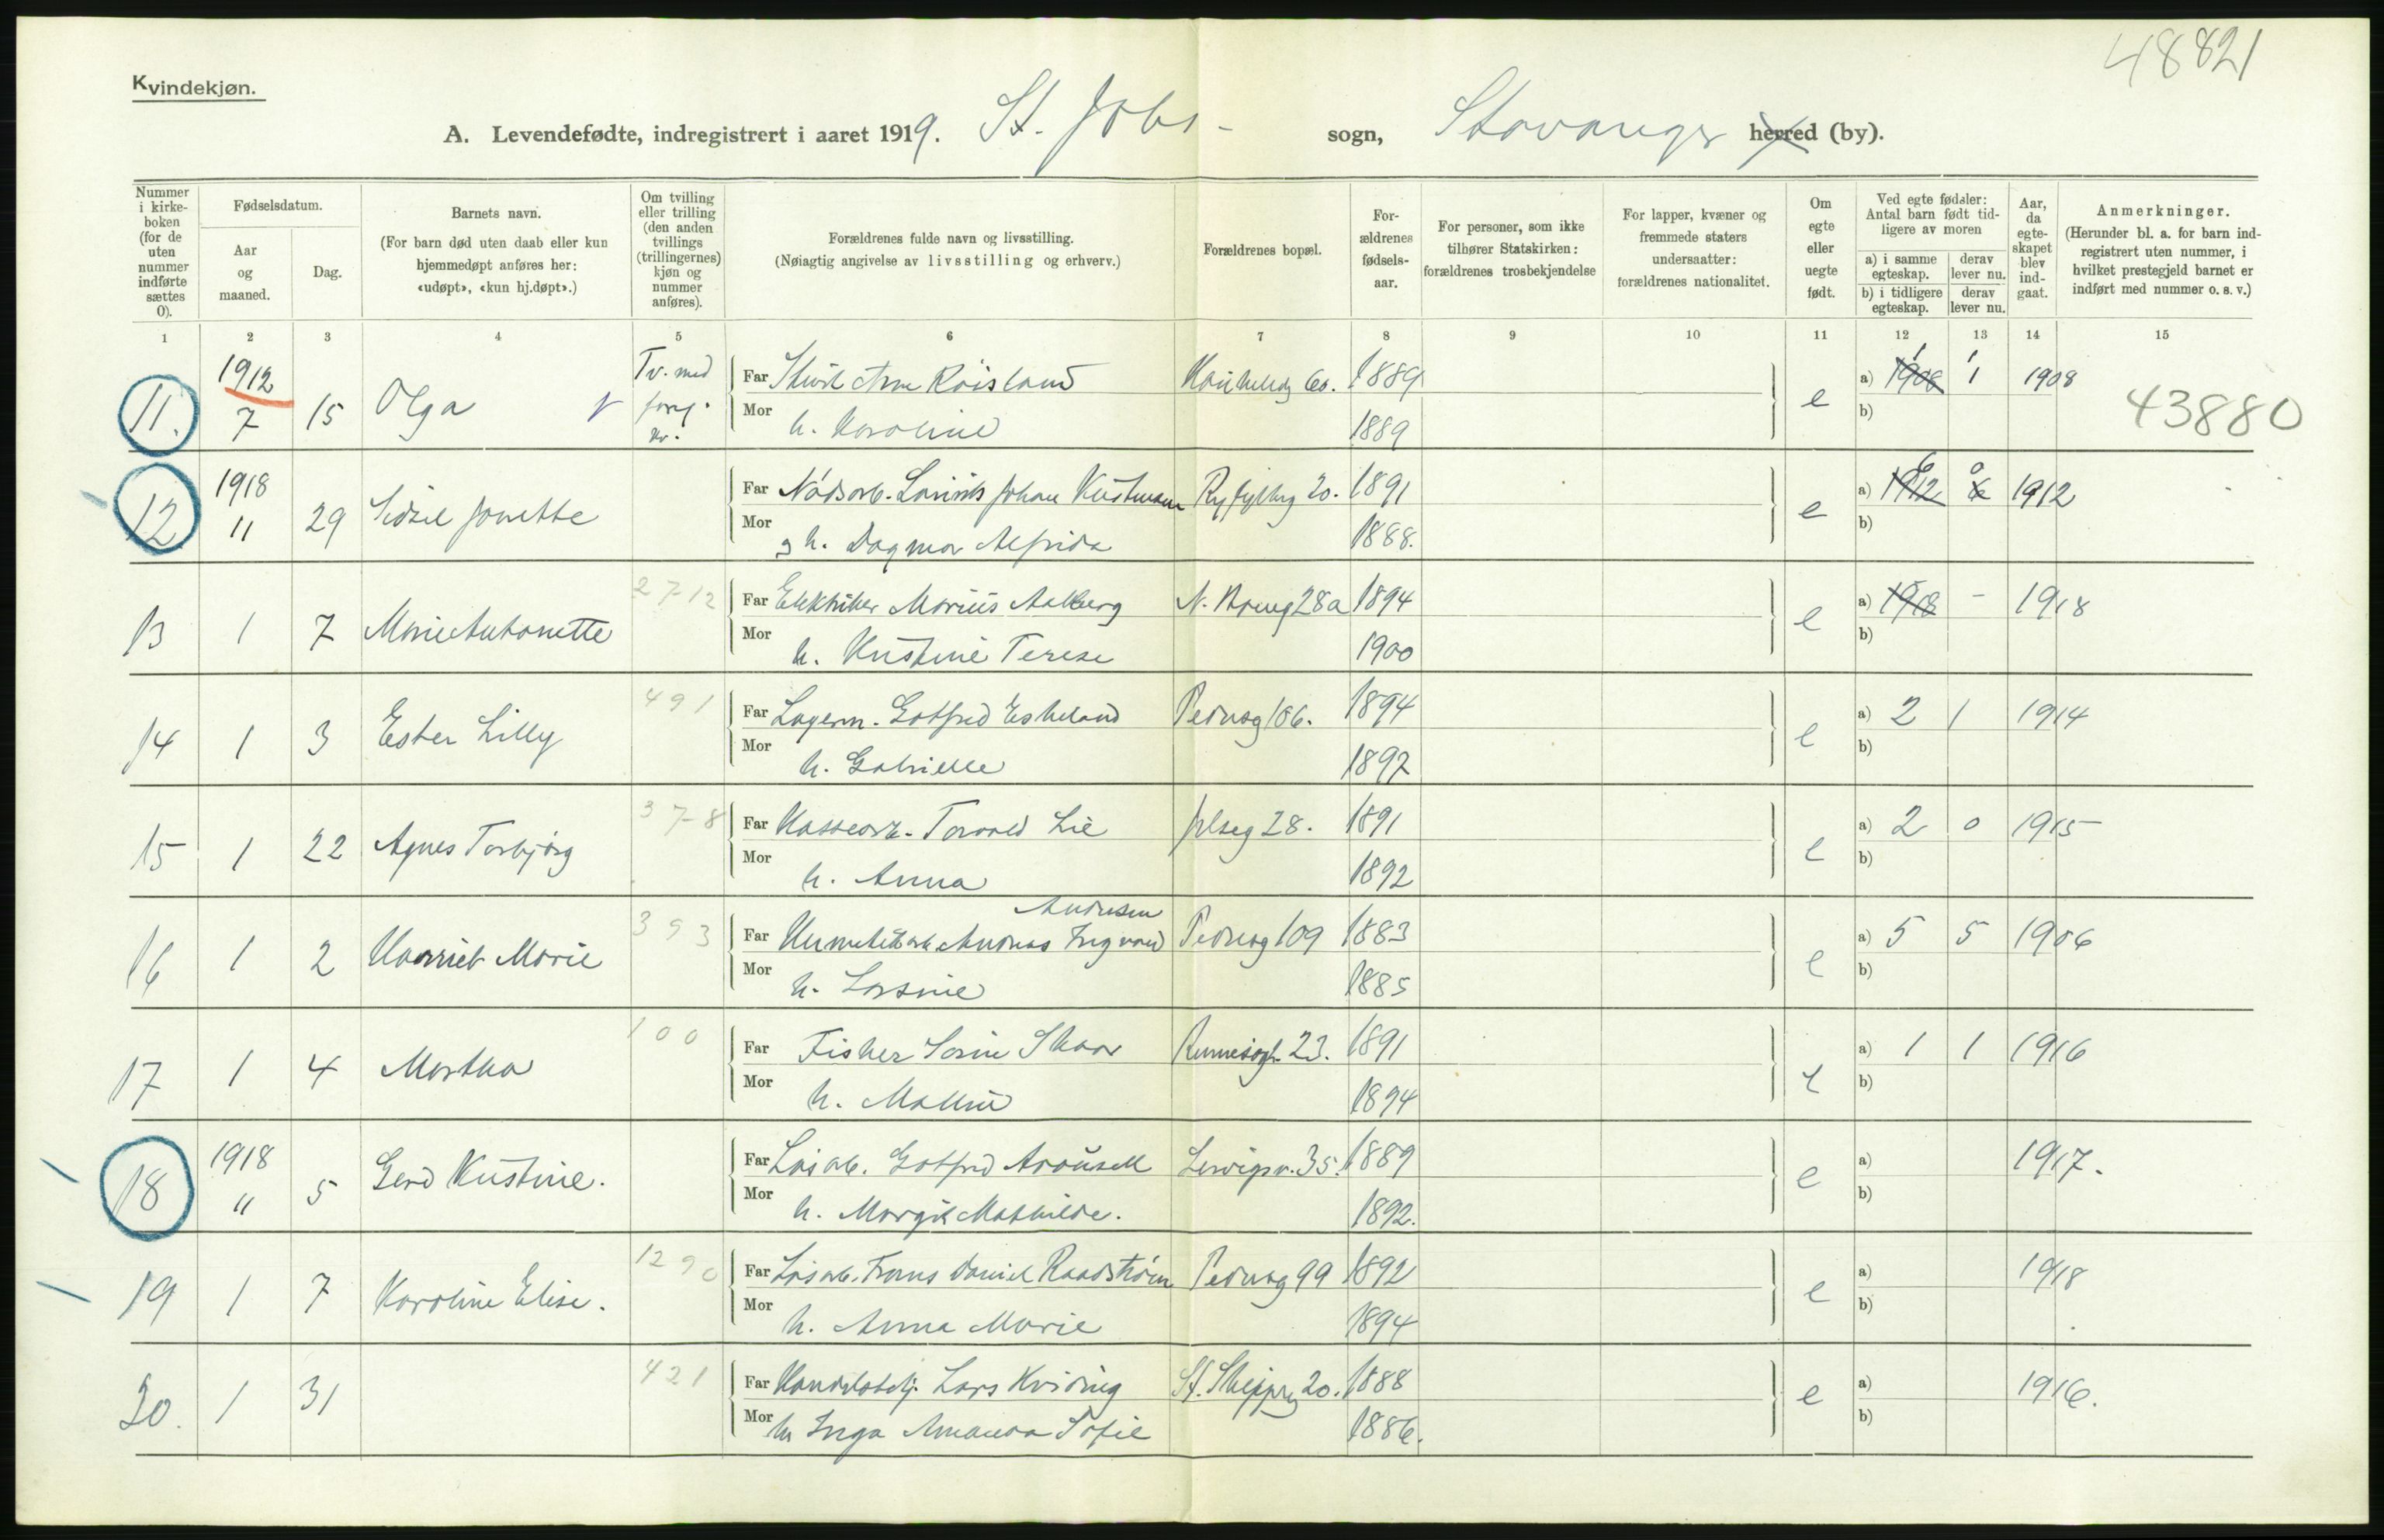 48821
Kvindekjøn.
A. Levendefødte, indregistrert i aaret 1919. St. Johs - sogn, Stavanger herred (by).
Nummer i kirkeboken (for de uten nummer indførte sættes 0).
Fødselsdatum.
Aar og maaned.
Dag.
Barnets navn.
(For barn død uten daab eller kun hjemmedøpt anføres her: «udøpt», «kun hj.døpt».)
Om tvilling eller trilling (den anden tvillings (trillingernes) kjøn og nummer anføres).
Forældrenes fulde navn og livsstilling.
(Nøiagtig angivelse av livsstilling og erhverv.)
Forældrenes bopæl.
Forældrenes fødselsaar.
For personer, som ikke tilhører Statskirken: forældrenes trosbekjendelse
For lapper, kvæner og fremmede staters undersaatter: forældrenes nationalitet.
Om egte eller uegte født.
Ved egte fødsler: Antal barn født tidligere av moren
a) i samme egteskap. derav lever nu.
b) i tidligere egteskap. derav lever nu.
Aar, da egteskapet blev indgaat.
Anmerkninger.
(Herunder bl. a. for barn indregistrert uten nummer, i hvilket prestegjeld barnet er indført med nummer o. s. v.)
1 2 3 4 5 6 7 8 9 10 11 12 13 14 15
11. 1912 7 15 Olga Tv. med Far Arne Roisland 60. 1889 e a) 1908 1 1 1 1908 43880
Mor h. Karoline 1889 b)
12 1918 11 29 Sidsel Jonette Far Johan 20. 1891 e a) 1912 0 1912
Mor g h. Dagmar Alfrida 1888. b)
13 1 7 Marie Antonette 2712 Far Elektriker Marius Aalberg 28a 1894 e a) 1918 - 1918
Mor h. Kristine Terese 1900 b)
14 1 3 Ester Lilly 491 Far Lagerm. Gotfred Eskeland Pedersg 106. 1894 e a) 2 1 1914
Mor h. Gabrielle 1892 b)
15 1 22 Agnes Torbjørg 378 Far Torvald Lie 28. 1891 e a) 2 0 1915
Mor h. Anna 1892 b)
16 1 2 Harriet Marie 393 Far Hermetikarb Andreas Ingvald Andersen Pedersg 109 1883 e a) 5 5 1906
Mor h. Larsine 1885 b)
17 1 4 Martha 100 Far Fisker Skaar 23. 1891 e a) 1 1 1916
Mor h. 1894 b)
18 1918 11 5 Gerd Kristine. Far Løsarb. Gotfred 35. 1889 e a) 1917.
Mor h. Margit Mathilde. 1892. b)
19 1 7 Karoline Elise. 1290 Far Løsarb. Frans Daniel Raadstrøm Pedersg 99 1892 e a) 1918
Mor h. Anna Marie 1894 b)
20. 1 31 421 Far Handelsbetj. Lars Kviding St. Skipperg 20. 1888 e a) 1916.
Mor h Inga Amanda Sofie 1886. b)